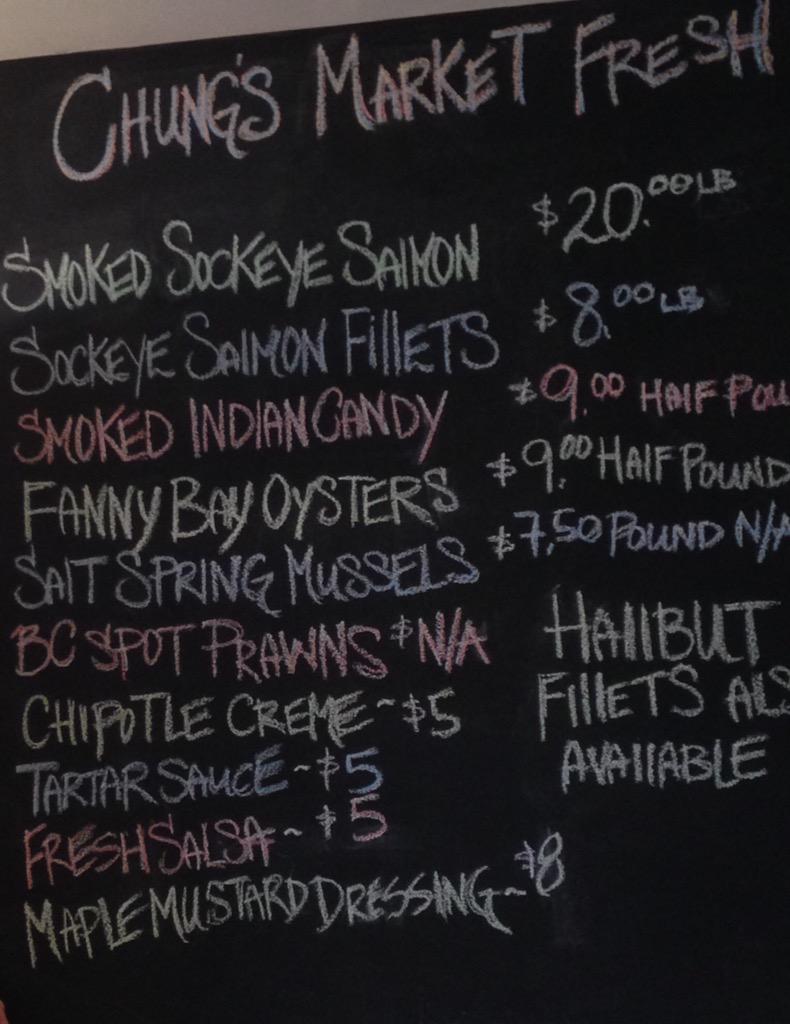 CHUNG'S MARKET FRESH
SMOKED SOCKEYE SALMON $20.00 LB
SOCKEYE SALMON FILLETS $8.00 LB
SMOKED INDIAN CANDY $9.00 HALF POU
FANNY BAY OYSTERS $9.00 HALF POUND
SALT SPRING MUSSELS $7.50 POUND N/A
BC SPOT PRAWNS $N/A
CHIPOTLE CREME ~ $5
TARTAR SAUCE ~ $5
FRESH SALSA ~ $5
MAPLE MUSTARD DRESSING ~ $8
HALIBUT
FILLETS ALS
AVAILABLE